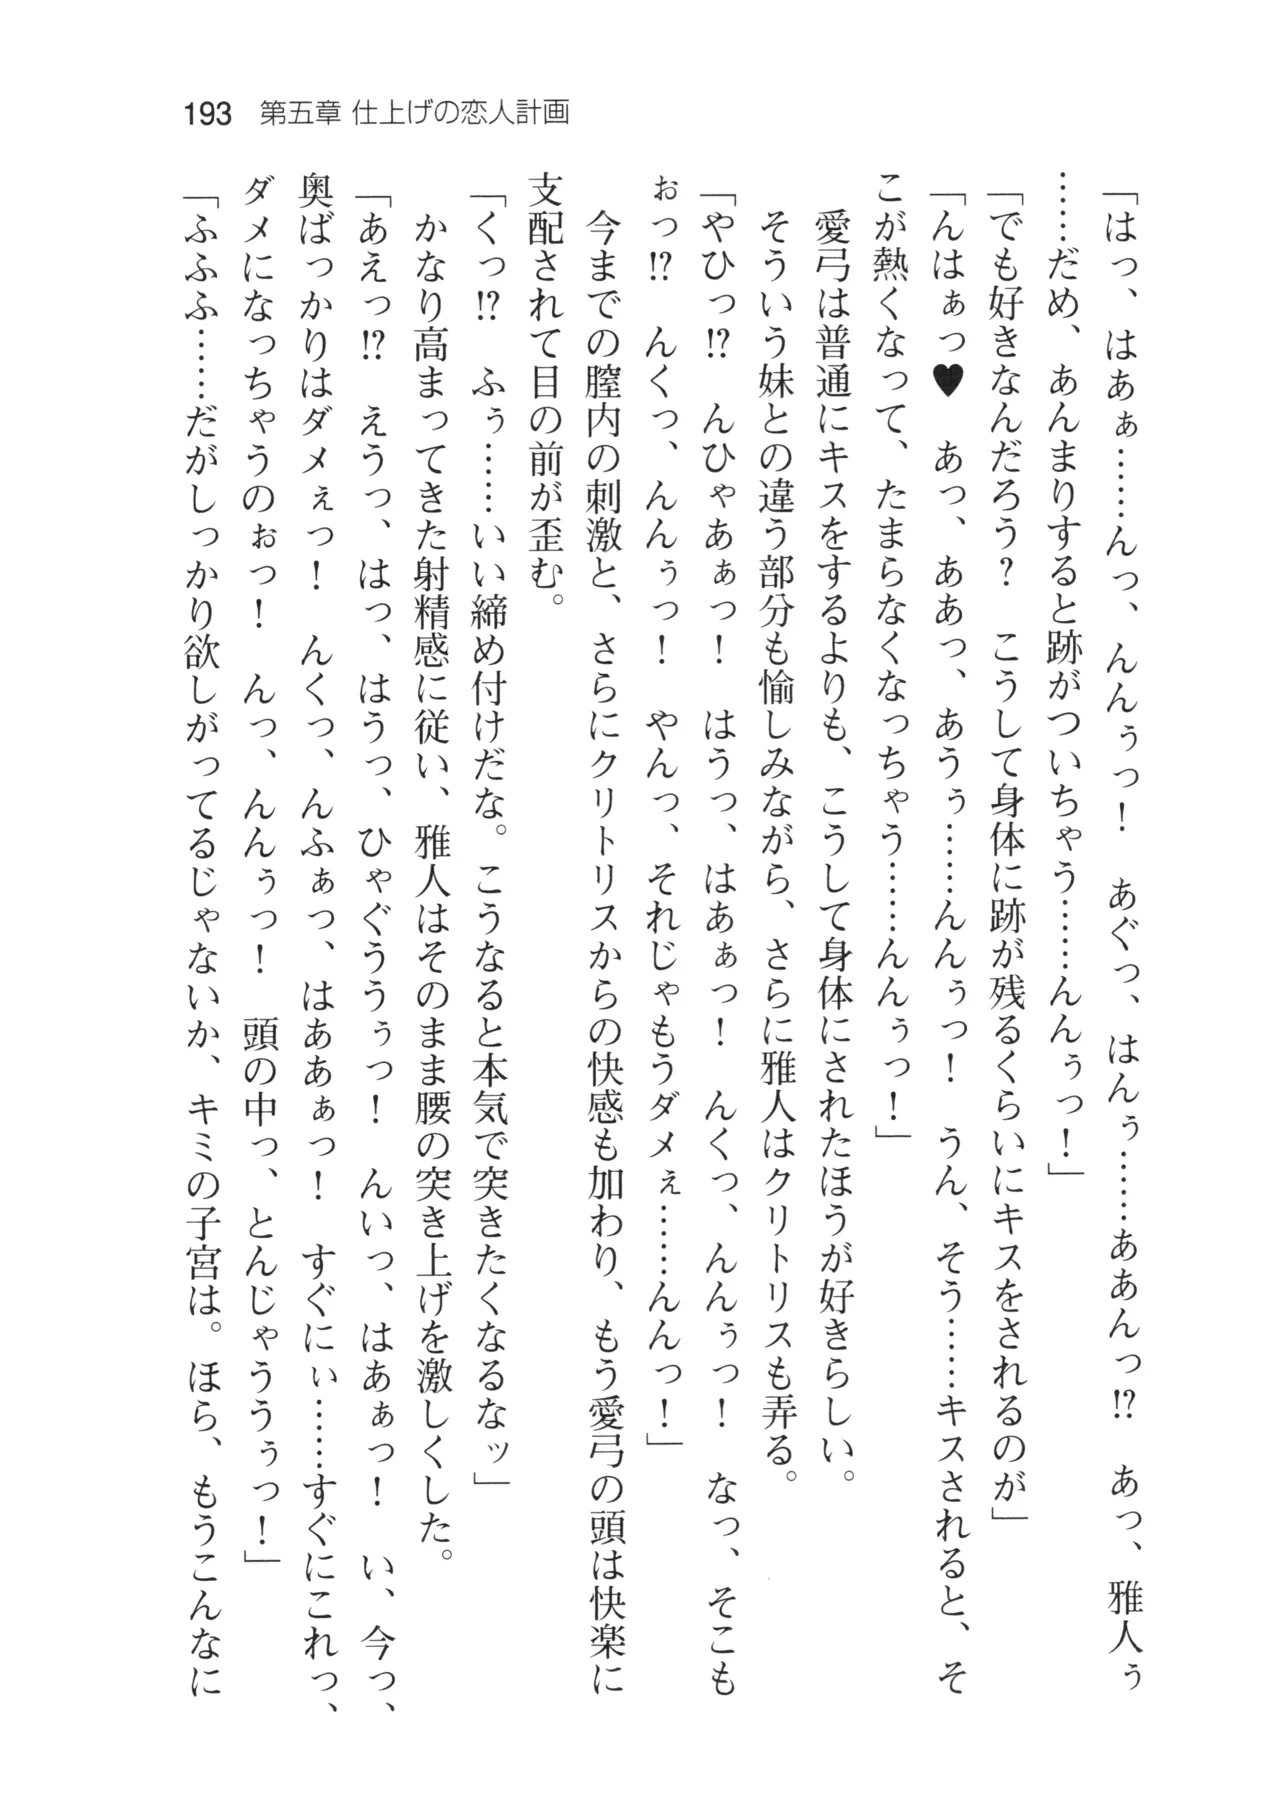 193 第五章 仕上げの恋人計画
「はっ、はあぁ……んっ、んんぅっ！　あぐっ、はんぅ……ああんっ!?　あっ、雅人ぅ
……だめ、あんまりすると跡がついちゃう……んんぅっ！」
「でも好きなんだろう？　こうして身体に跡が残るくらいにキスをされるのが」
「んはぁっ♥　あっ、ああっ、あうぅ……んんぅっ！　うん、そう……キスされると、そ
こが熱くなって、たまらなくなっちゃう……んんぅっ！」
　愛弓は普通にキスをするよりも、こうして身体にされたほうが好きらしい。
　そういう妹との違う部分も愉しみながら、さらに雅人はクリトリスも弄る。
「やひっ!?　んひゃあぁっ！　はうっ、はあぁっ！　んくっ、んんぅっ！　なっ、そこも
ぉっ!?　んくっ、んんぅっ！　やんっ、それじゃもうダメぇ……んんっ！」
　今までの膣内の刺激と、さらにクリトリスからの快感も加わり、もう愛弓の頭は快楽に
支配されて目の前が歪む。
「くっ!?　ふぅ……いい締め付けだな。こうなると本気で突きたくなるなッ」
　かなり高まってきた射精感に従い、雅人はそのまま腰の突き上げを激しくした。
「あえっ!?　えうっ、はっ、はうっ、ひゃぐううぅっ！　んいっ、はあぁっ！　い、今っ、
奥ばっかりはダメぇっ！　んくっ、んふぁっ、はああぁっ！　すぐにぃ……すぐにこれっ、
ダメになっちゃうのぉっ！　んっ、んんぅっ！　頭の中っ、とんじゃううぅっ！」
「ふふふ……だがしっかり欲しがってるじゃないか、キミの子宮は。ほら、もうこんなに